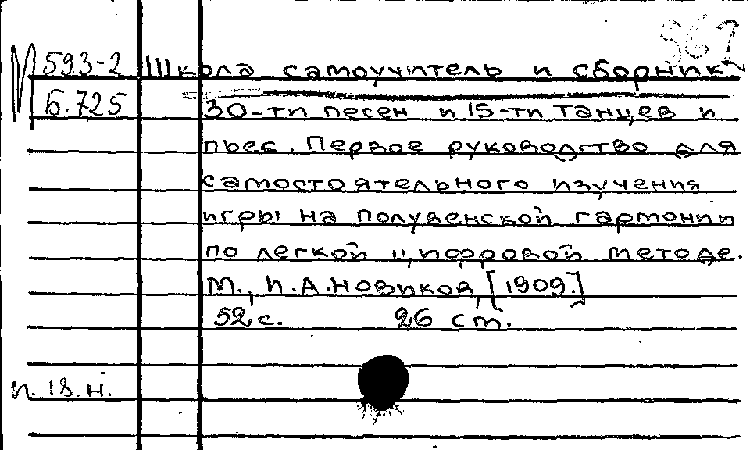 567
М 593-2 Школа самоучитель и сборник
Б.725 30-ти песен и 15-ти танцев и
пьес. Первое руководство для
самостоятельного изучения
игры на полувенской гармонии
по легкой цифровой методе.
М., И.А. Новиков, [1909.]
52 с. 26 см.
п. 18. н.